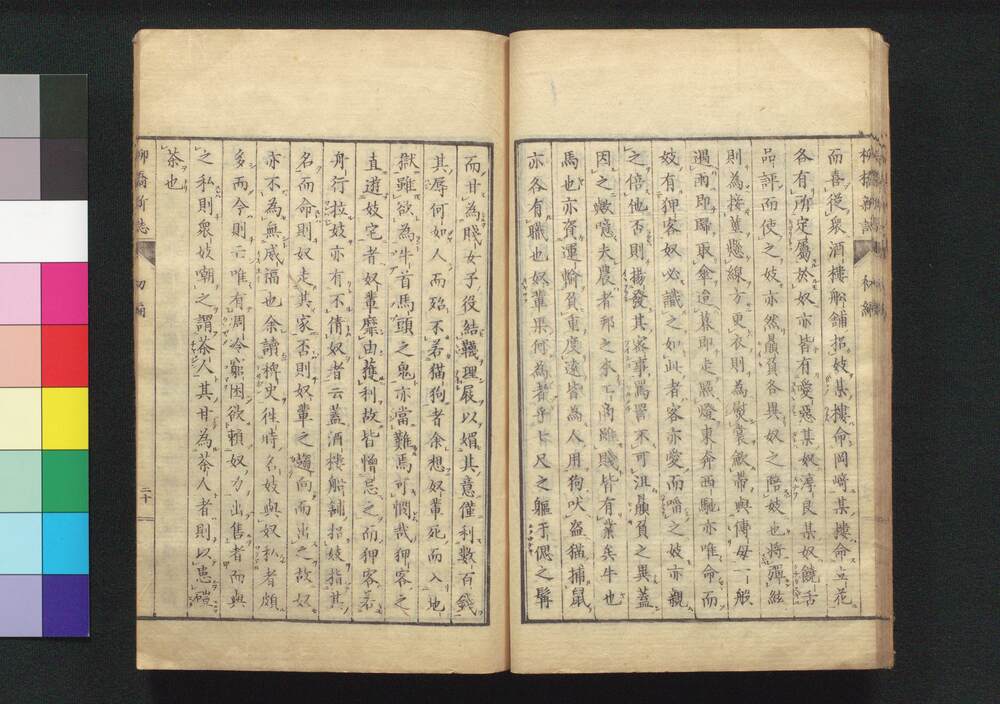 柳橋新誌 初編
而喜役衆酒樓舩舗招妓某樓命岡﨑某樓命立花
各有所定屬於奴亦皆有愛惡某奴淳良某奴饒舌
品評而使之妓亦然最負各異奴之陪妓也將彈絃
則為接懸線方更衣則為斂帶與傳母一般
遇雨即歸取傘迨暮即走照燈東奔西馳亦唯命而
妓有狎客奴必識之如此者客亦愛而啗之妓亦親
之倍他否則揚發其客事罵詈不可沮最負之異蓋
因之噫夫農者邦之本工商雖賤皆有業矣牛也
馬也亦資運輸負重度遠皆為人用狗吠盗猫捕鼠
亦各有職也奴輩果何為者乎七尺之軀于偲之髯
而甘為賤女子役結韈理屐以媚其意僅利數百錢
其辱何如人而殆不若猫狗者余想奴輩死而入地
獄雖欲為牛首馬頭之鬼亦當難焉可憫哉狎客之
直遊妓宅者奴輩靡由獲利故皆憎忌之而狎客若
舟行拉妓亦有不倩奴者云蓋酒樓舩舗招妓指其
名而命則奴走其家否則奴輩之向而出之故奴
亦不為無威福也余讀稗史徃時名妓與奴私者頗
多而今則云唯有周冷窮困欲頼奴力出售者而與
之私則衆妓嘲之謂茶人其甘為茶人者則以患磑
茶也
柳橋新誌 初編 二十